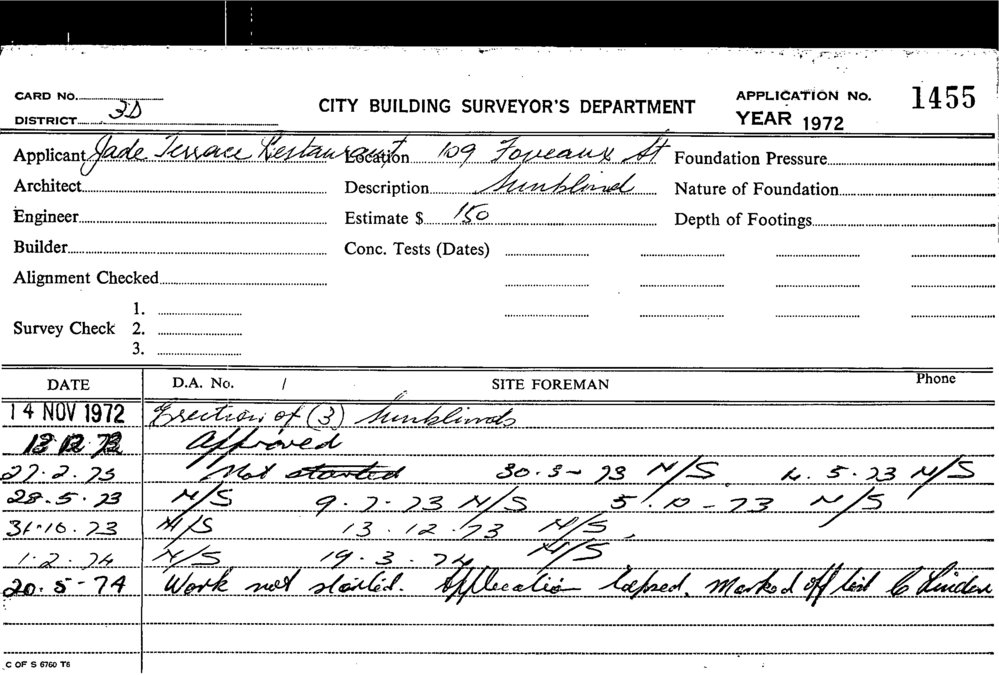 CARD No. CITY BUILDING SURVEYOR'S DEPARTMENT APPLICATION No. 1455
DISTRICT 3D YEAR 1972
Applicant Jade Terrace Restaurant Location 109 Foveaux St Foundation Pressure
Architect Description Sunblind Nature of Foundation
Engineer Estimate $ 150 Depth of Footings
Builder Conc. Tests (Dates)
Alignment Checked
1.
Survey Check 2.
3.
DATE D.A. No. / SITE FOREMAN Phone
14 NOV 1972 Erection of (3) Sunblinds
13.12.72 Approved
27.2.73 Not started 30.3-73 N/S. 4.5.73 N/S
28.5.73 N/S 9.7.73 N/S 5.10-73 N/S
31.10.73 N/S 13.12.73 N/S.
1.2.74 N/S 19.3.74 N/S
20.5-74 Work not started. Application lapsed. Marked off list
C OF S 6760 T6